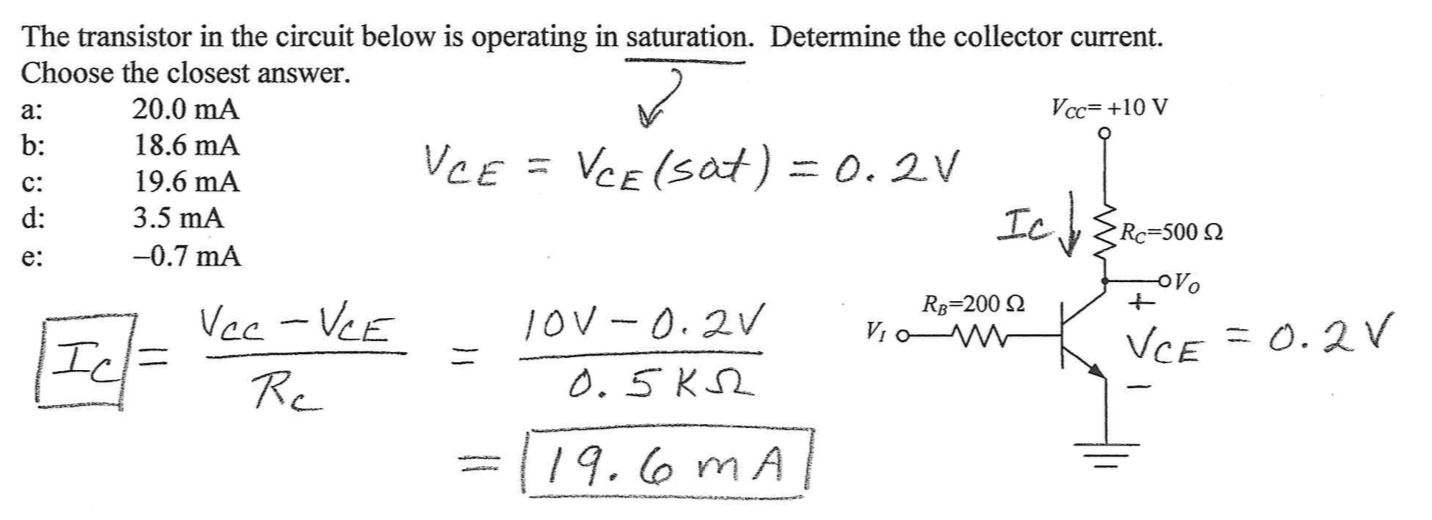 The transistor in the circuit below is operating in saturation. Determine the collector current.
Choose the closest answer.
a: 20.0 mA
b: 18.6 mA
c: 19.6 mA
d: 3.5 mA
e: −0.7 mA
VCE = VCE(sat) = 0.2V
VCC= +10 V
IC
RC=500 Ω
VO
RB=200 Ω
VI
+
VCE = 0.2V
−
IC = VCC − VCE / RC = 10V − 0.2V / 0.5KΩ
= 19.6 mA